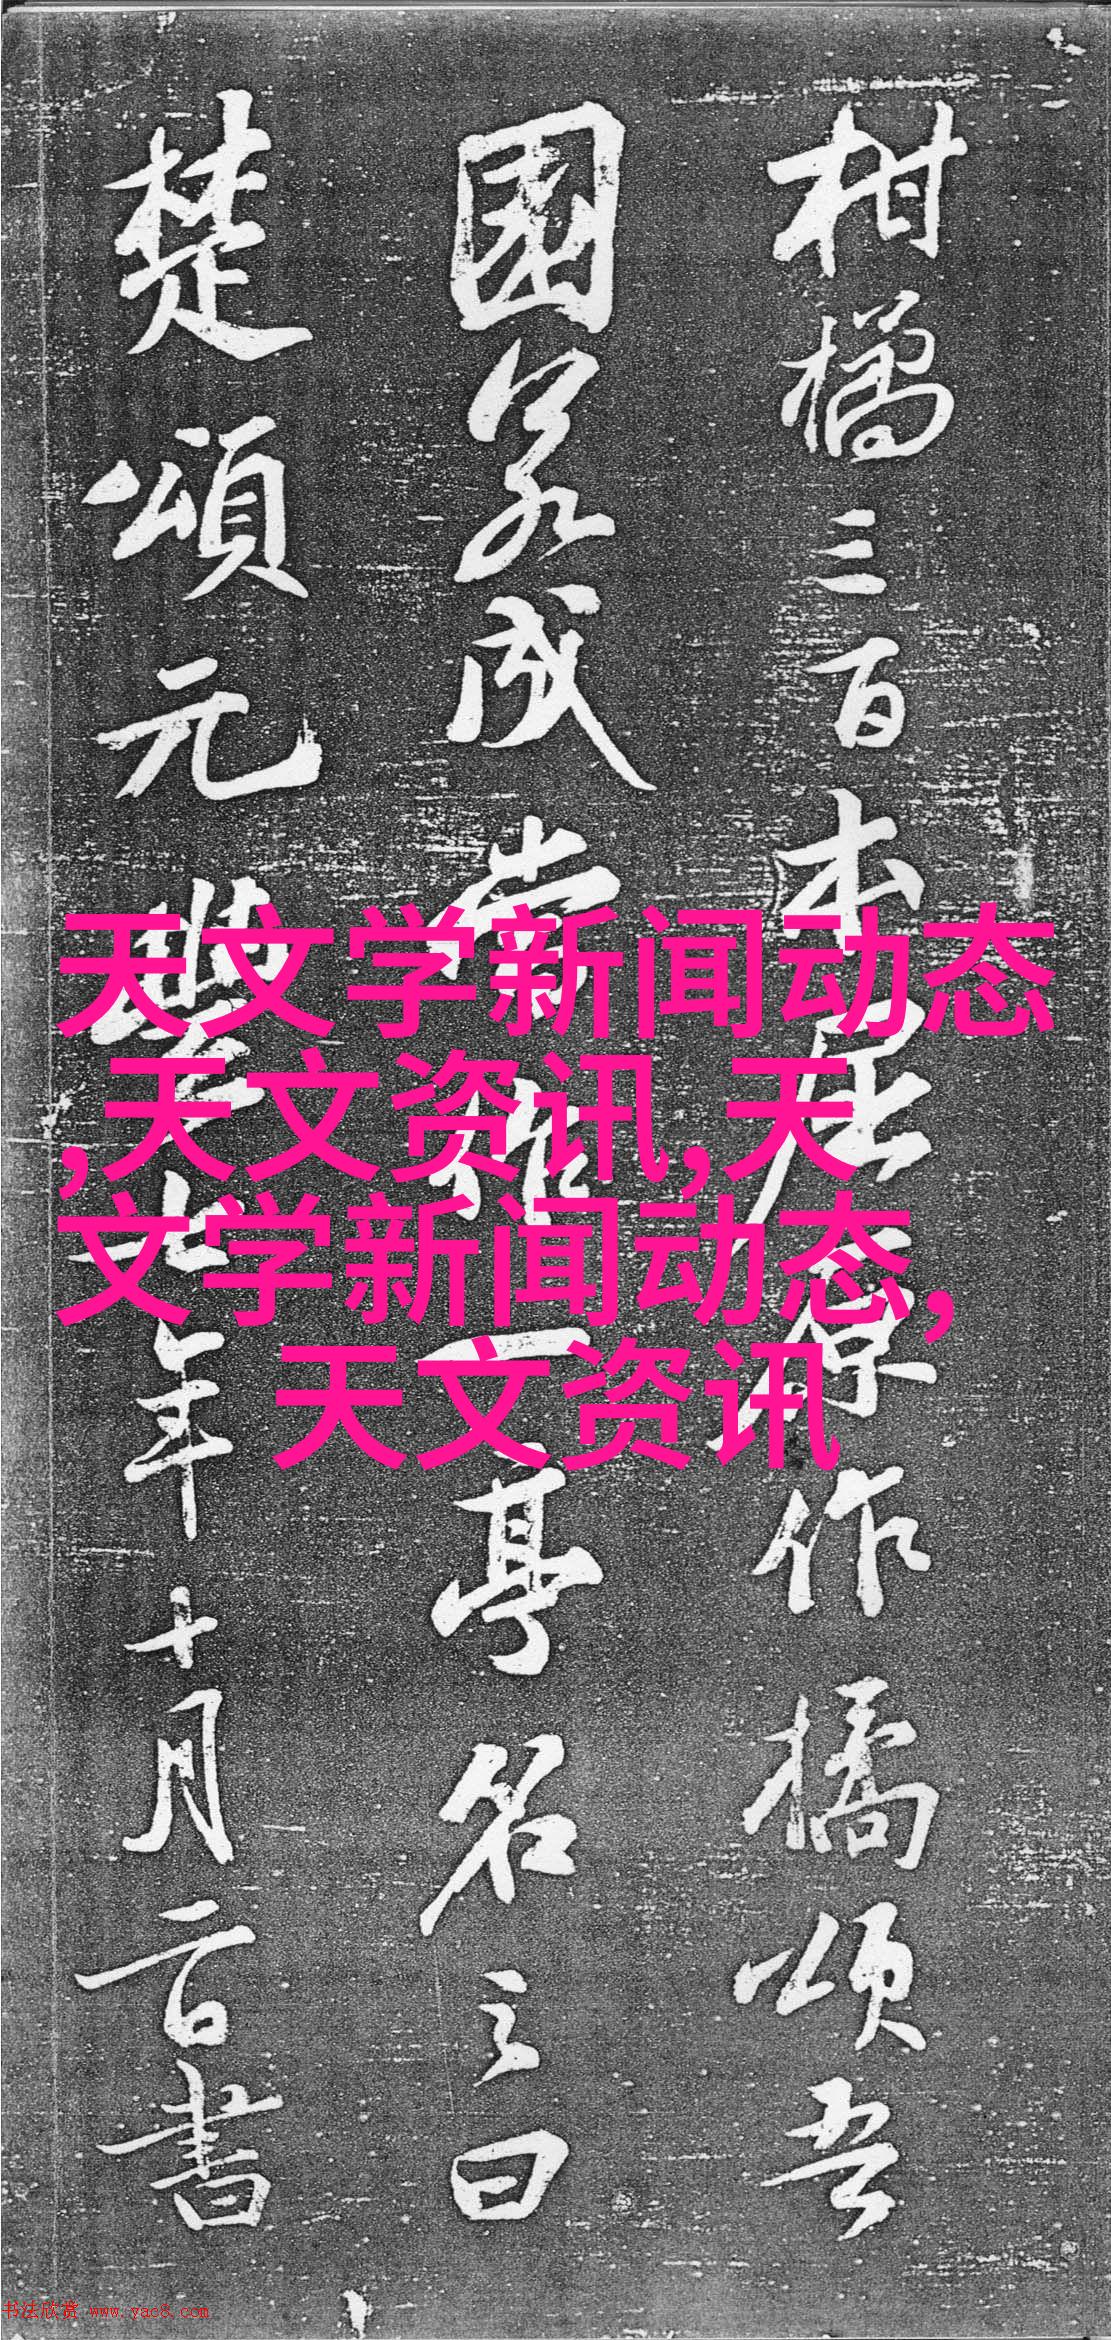 柑橘三百本屈原作橘頌吾
園若成當作一亭名之曰
楚頌元豐七年十月二日書
天文学新闻动态
,天文资讯,天
文学新闻动态,
天文资讯
书法欣赏 www.yac8.com